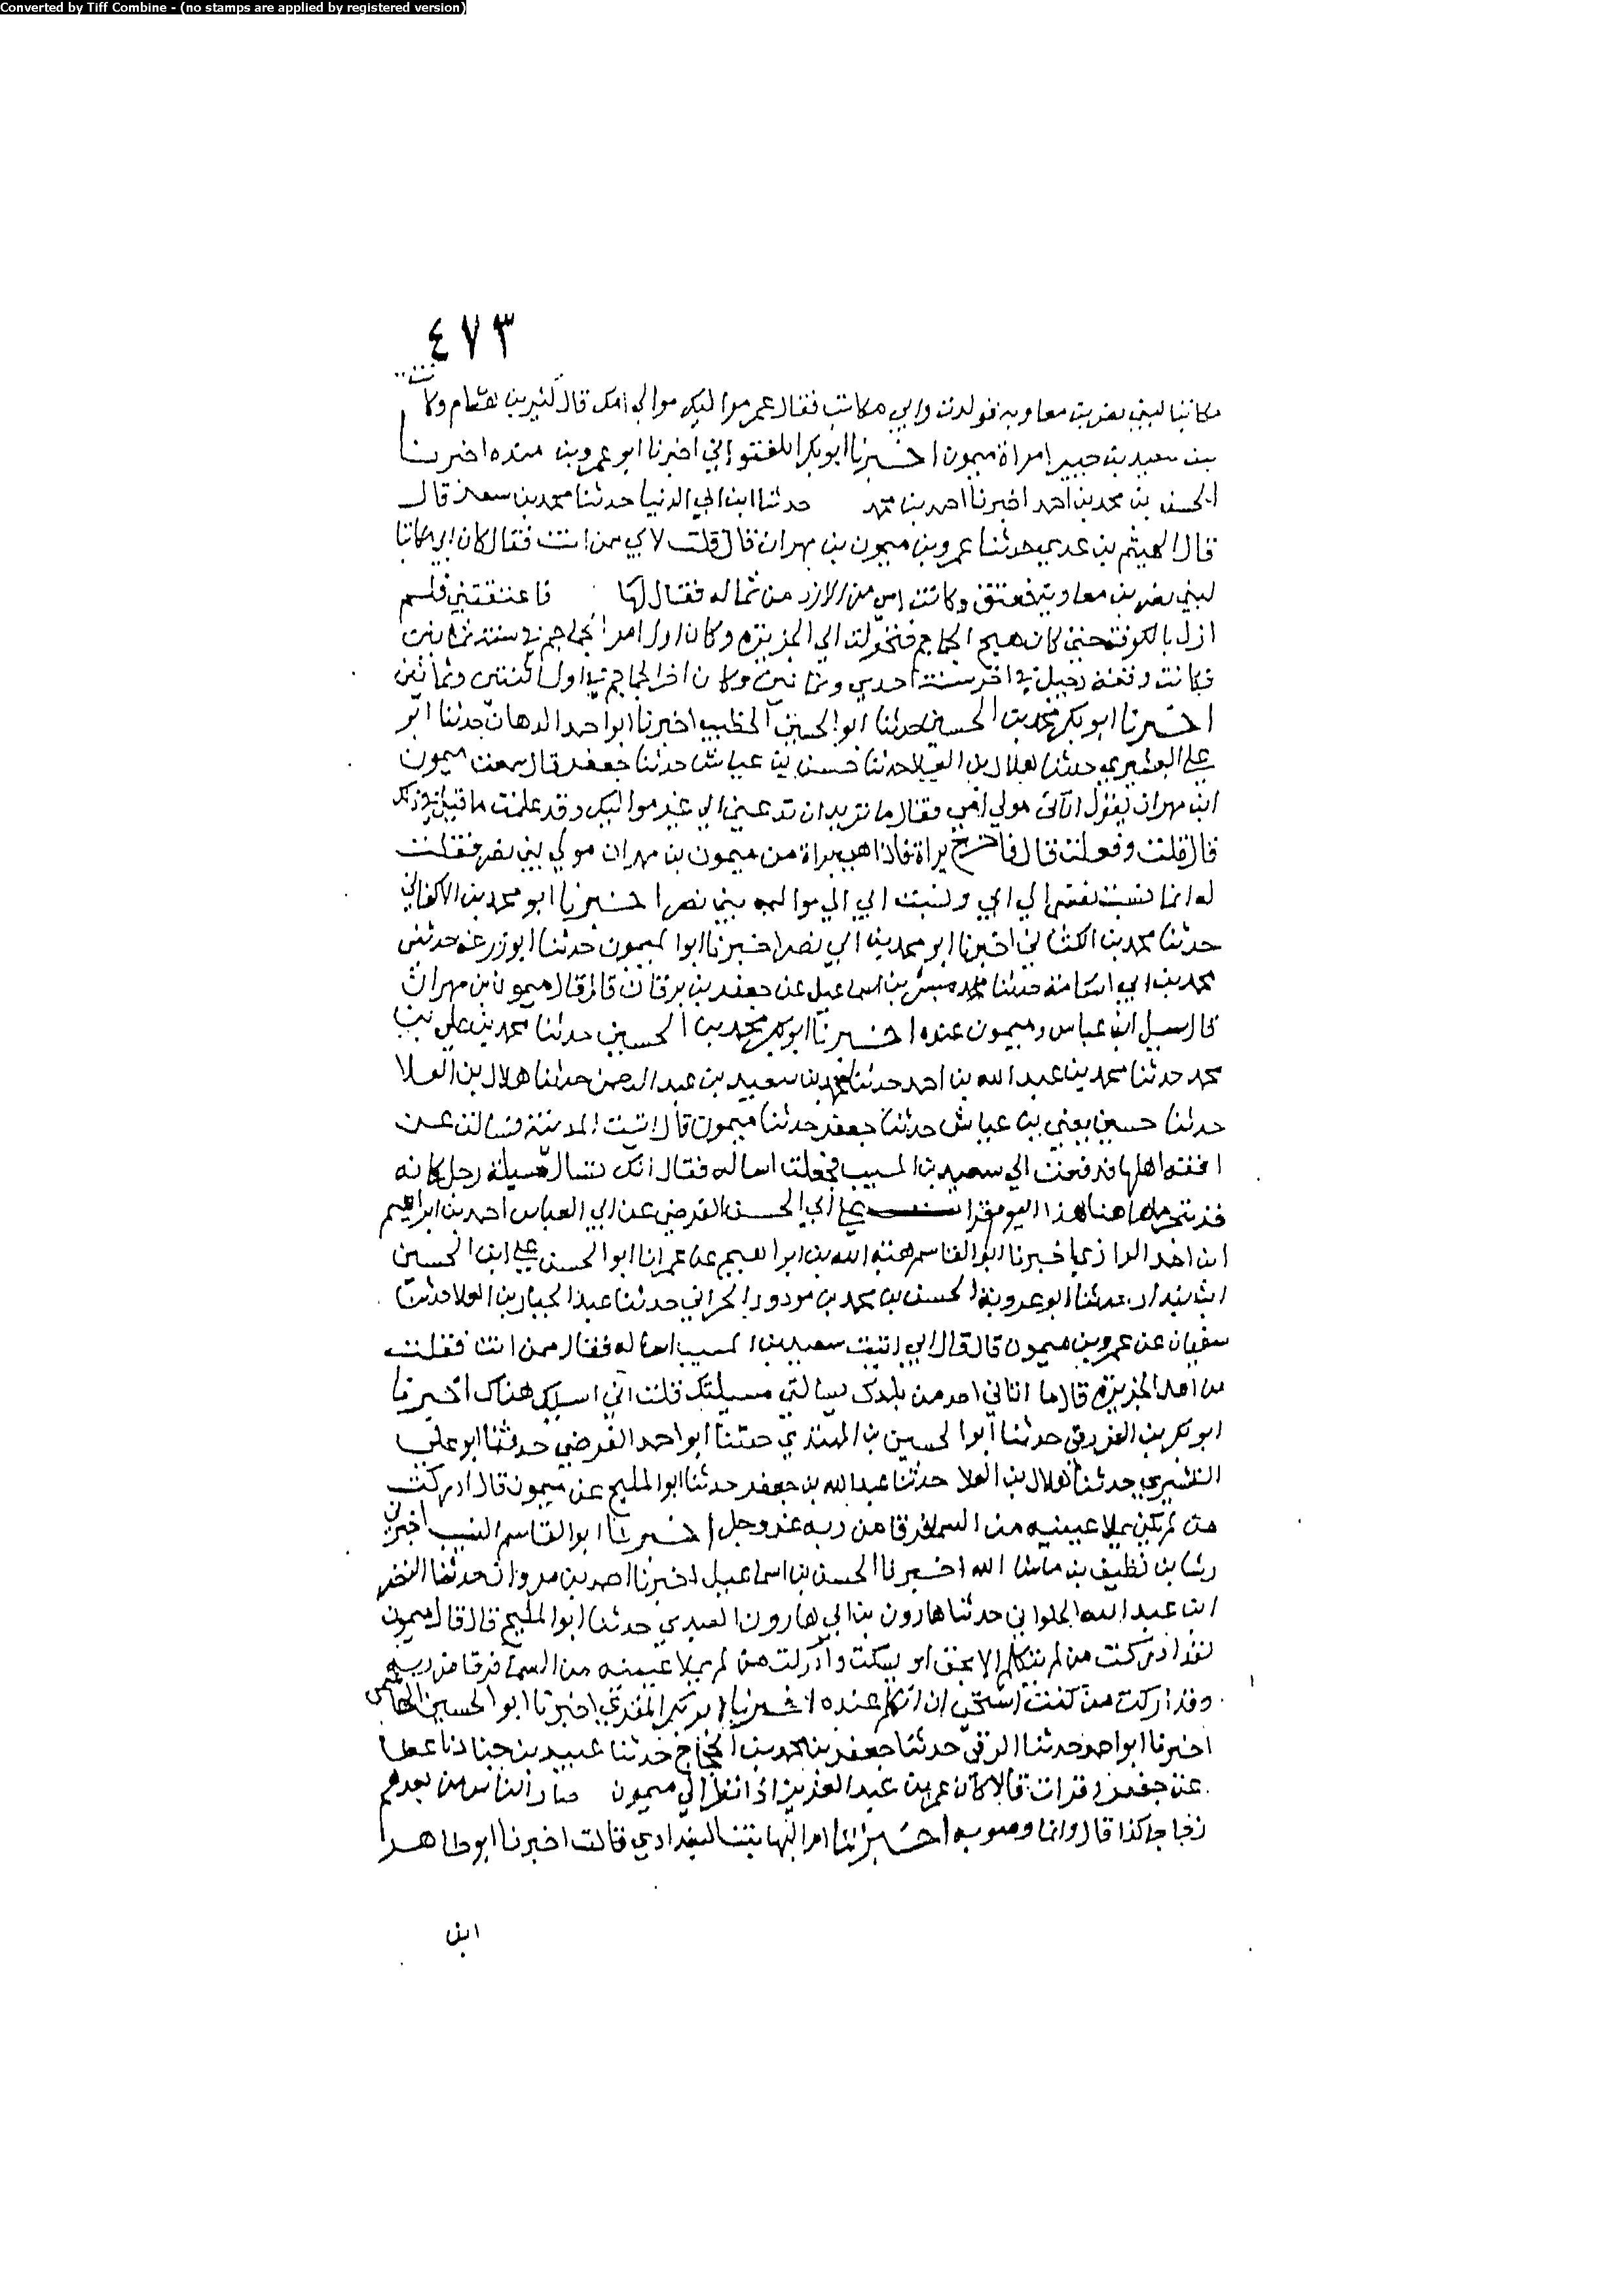 Converted by Tiff Combine - (no stamps are applied by registered version)
٤٧٣
مكاتبا لبني نصر بن معاويه فولدت وابي مكاتب فقال عمر مواليك موالي امك قال كثير بن هشام وكانت
بنت سعيد بن جبير امراة ميمون اخبرنا ابو بكر اللفتواني اخبرنا ابو عمرو بن منده اخبرنا
الحسن بن محمد بن احمد اخبرنا احمد بن محمد حدثنا ابن ابي الدنيا حدثنا محمد بن سعد قال
قال الهيثم بن عدي حدثنا عمرو بن ميمون بن مهران قال قلت لابي ممن انت فقال كان ابي مكاتبا
لبني نصر بن معاوية فعتق وكانت امي من الازد من ثماله فقال لها فاعتقتني فلم
ازل بالكوفة حتى كان هيج الجماجم فتحولت الي الجزيره وكان اول امر الجماجم في سنة ثمانين
فكانت وقعة دجيل في اخر سنة احدي وثمانين وكان اخر الجماجم في اول ثنتين وثمانين
اخبرنا ابو بكر محمد بن الحسين حدثنا ابو الحسين الخطيب اخبرنا ابو احمد الدهان حدثنا ابو
علي القشيري حدثنا هلال بن العلا حدثنا حسن بن عياش حدثنا جعفر قال سمعت ميمون
ابن مهران يقول اتاني مولي امي وقال ما تريد ان تدعي الي غير مواليك وقد علمت ما قيل في ذلك
قال قلت وفعلت قال فاخرج براة فاذا هي براة من ميمون بن مهران مولي بني نصر فقلت
له انما نسبت نفسي الي ابي ونسبت ابي الي مواليه بني نصر اخبرنا ابو محمد بن الاكفاني
حدثنا محمد بن الكتاني اخبرنا ابو محمد بن ابي نصر اخبرنا ابو الميمون حدثنا ابو زرعه حدثني
محمد بن ابي اسامة حدثنا مبشر بن اسماعيل عن جعفر بن برقان قال قال ميمون بن مهران
قال سيل ابن عباس وميمون عنده اخبرنا ابو بكر محمد بن الحسين حدثنا محمد بن علي بن
محمد حدثنا محمد بن عبد الله بن احمد حدثنا محمد بن سعيد بن عبد الرحمن حدثنا هلال بن العلا
حدثنا حسين يعني بن عياش حدثنا جعفر حدثنا ميمون قال اتيت المدينة فسالت عن
افقه اهلها فدفعت الي سعيد بن المسيب فجعلت اساله فقال انك تسال مسيلة رجل كانه
قد تبحر ما هاهنا هذا اليوم قرات علي ابي الحسن الفرضي عن ابي العباس احمد بن ابراهيم
ابن احمد الرازي اخبرنا ابو القاسم هبة الله بن ابراهيم عن عمر انا ابو الحسن علي ابن الحسين
ابن بندار حدثنا ابو عروبة الحسن بن محمد بن مودود الحراني حدثنا عبد الجبار بن العلا حدثنا
سفيان عن عمرو بن ميمون قال قال ابي اتيت سعيد بن المسيب اساله فقال ممن انت فقلت
من اهل الجزيره قال ما اتاني احد من بلدك يسالني مسيلتك قلت اني اسيلك هناك اخبرنا
ابو بكر بن المزرفي حدثنا ابو الحسين بن المهتدي حدثنا ابو احمد الفرضي حدثنا ابو علي
القشيري حدثنا هلال بن العلا حدثنا عبد الله بن جعفر حدثنا ابو المليح عن ميمون قال ادركت
من لم يكن يملا عينيه من السما فرقا من ربه عز وجل اخبرنا ابو القاسم النسيب اخبرني
رشا بن نظيف بن ماشا الله اخبرنا الحسن بن اسماعيل اخبرنا احمد بن مروان حدثنا النضر
ابن عبد الله الحلواني حدثنا هارون بن ابي هارون العبدي حدثنا ابو المليح قال قال ميمون
لقد ادركت من لم يتكلم الا بحق او يسكت وادركت من لم يملا عينيه من السما فرقا من ربه
وقد ادركت من كنت استحيي ان اتكلم عنده اخبرنا ابو بكر المقري اخبرنا ابو الحسين الهاشمي
اخبرنا ابو احمد حدثنا الرقي حدثنا جعفر بن محمد بن الحجاج حدثنا عبيد بن جناد نا عطا
عن جعفر وفرات قالا كان عمر بن عبد العزيز اذا نظر الي ميمون صار الناس من بعدهم
زجاجا كذا قال وانما وصوبه اخبرتنا ام البها بنت البغدادي قالت اخبرنا ابو طاهر
ابن